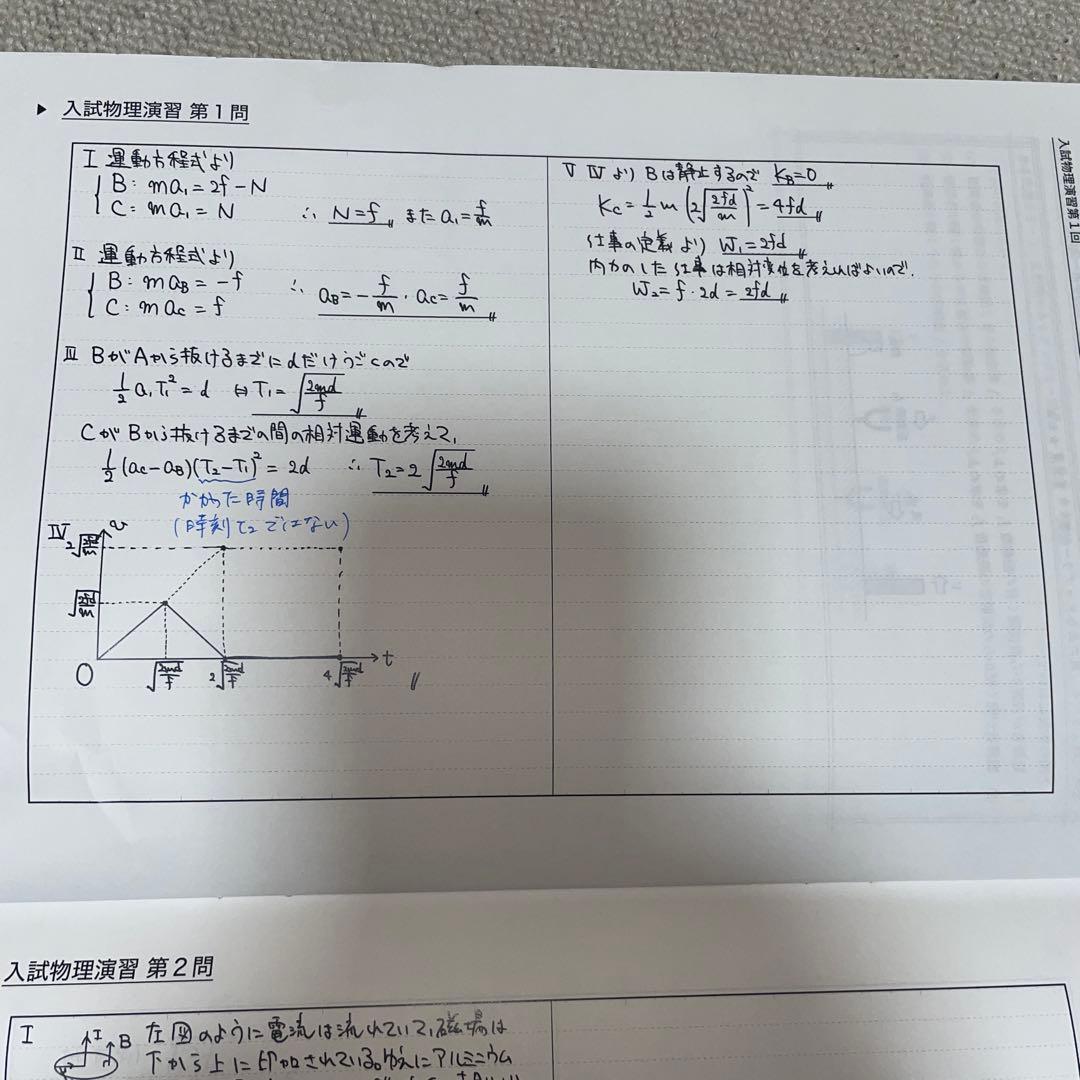 ▶ 入試物理演習 第1問
I 運動方程式より
B: ma₁ = 2f − N
C: ma₁ = N ∴ N = f また a₁ = f/m
II 運動方程式より
B: ma_B = −f
C: ma_C = f ∴ a_B = −f/m , a_C = f/m
III BがAから抜けるまでにdだけうごくので
1/2 a₁T₁² = d ⇔ T₁ = √(2md/f)
CがBから抜けるまでの間の相対運動を考えて、
1/2 (a_C − a_B)(T₂ − T₁)² = 2d ∴ T₂ = 2√(2md/f)
かかった時間
(時刻T₂ではない)
IV v
2√(2fd/m)
√(2fd/m)
O √(2md/f) 2√(2md/f) 4√(2md/f) t
V IVよりBは静止するので K_B = 0
K_C = 1/2 m (2√(2fd/m))² = 4fd
仕事の定義より W₁ = 2fd
内力のした仕事は相対変位を考えればよいので、
W₂ = f・2d = 2fd
入試物理演習 第1回
入試物理演習 第2問
I I B 左図のように電流は流れていて、磁場は
下から上に印加されている。ゆえにアルミニウム